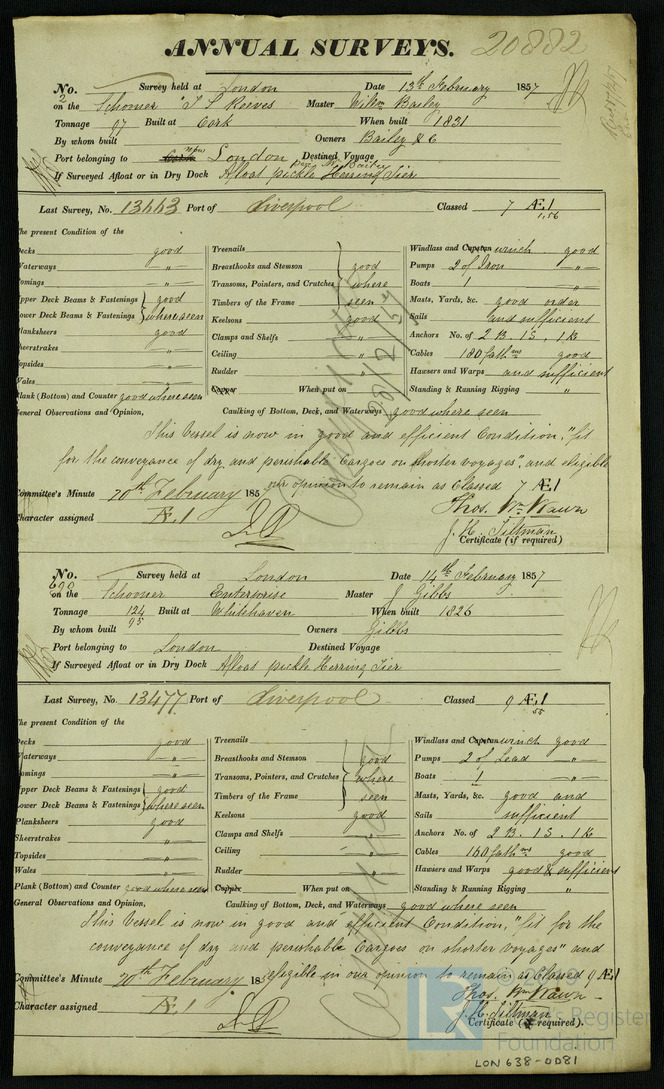 ANNUAL SURVEYS. 20882
No. 2 Survey held at London Date 13th February 1857
on the Schooner T S Reeves Master Willm Bailey
Tonnage 97 Built at Cork When built 1831
By whom built Owners Bailey & C
Port belonging to Cork now London Destined Voyage
If Surveyed Afloat or in Dry Dock Afloat pickle Herring Tier
Last Survey, No. 13443 Port of Liverpool Classed 7 Æ1
1,56
The present Condition of the
Decks good Treenails Windlass and Capstan winch good
Waterways " Breasthooks and Stemson good Pumps 2 of Iron "
Comings " Transoms, Pointers, and Crutches where Boats 1 "
Upper Deck Beams & Fastenings good Timbers of the Frame seen Masts, Yards, &c. good order
Lower Deck Beams & Fastenings where seen Keelsons good Sails and sufficient
Planksheers good Clamps and Shelfs " Anchors No. of 2 B. 1 S. 1 K
Sheerstrakes " Ceiling " Cables 180 fathms good
Topsides " Rudder " Hawsers and Warps and sufficient
Wales " Copper When put on Standing & Running Rigging "
Plank (Bottom) and Counter good where seen
General Observations and Opinion, Caulking of Bottom, Deck, and Waterways good where seen
This Vessel is now in good and efficient Condition, "fit
for the conveyance of dry and perishable Cargoes on shorter voyages", and eligible
in our opinion to remain as Classed 7 Æ1
Committee's Minute 20th February 185 Thos. Wm Wawn
Character assigned Æ.1 J. H. Tiltman
Certificate (if required)
No. 690 Survey held at London Date 14th February 1857
on the Schooner Enterprise Master J Gibbs
Tonnage 124 95 Built at Whitehaven When built 1826
By whom built Owners Gibbs
Port belonging to London Destined Voyage
If Surveyed Afloat or in Dry Dock Afloat pickle Herring Tier
Last Survey, No. 13477 Port of Liverpool Classed 9 Æ1
55
The present Condition of the
Decks good Treenails Windlass and Capstan winch good
Waterways " Breasthooks and Stemson good Pumps 2 of Lead "
Comings " Transoms, Pointers, and Crutches where Boats 1 "
Upper Deck Beams & Fastenings good Timbers of the Frame seen Masts, Yards, &c. good and
Lower Deck Beams & Fastenings where seen Keelsons good Sails sufficient
Planksheers good Clamps and Shelfs " Anchors No. of 2 B. 1 S. 1 K
Sheerstrakes " Ceiling " Cables 160 fathms good
Topsides " Rudder " Hawsers and Warps good & sufficient
Wales " Copper When put on Standing & Running Rigging "
Plank (Bottom) and Counter good where seen
General Observations and Opinion, Caulking of Bottom, Deck, and Waterways good where seen
This Vessel is now in good and efficient Condition, "fit for the
conveyance of dry and perishable Cargoes on shorter voyages" and
eligible in our opinion to remain as Classed 9 Æ1
Committee's Minute 20th February 185 Thos. Wm Wawn
Character assigned Æ. J. H. Tiltman
Certificate (if required).
Lloyd's Register
Foundation
LON 638-0081